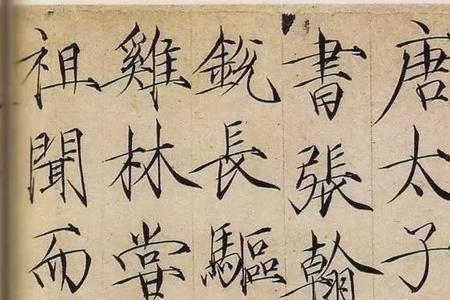 唐太子
書張翰
鋭長驅
雞林嘗
祖聞而